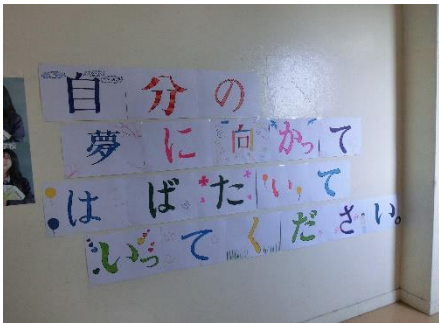 自分の
夢に向かって
はばたいて
いってください。